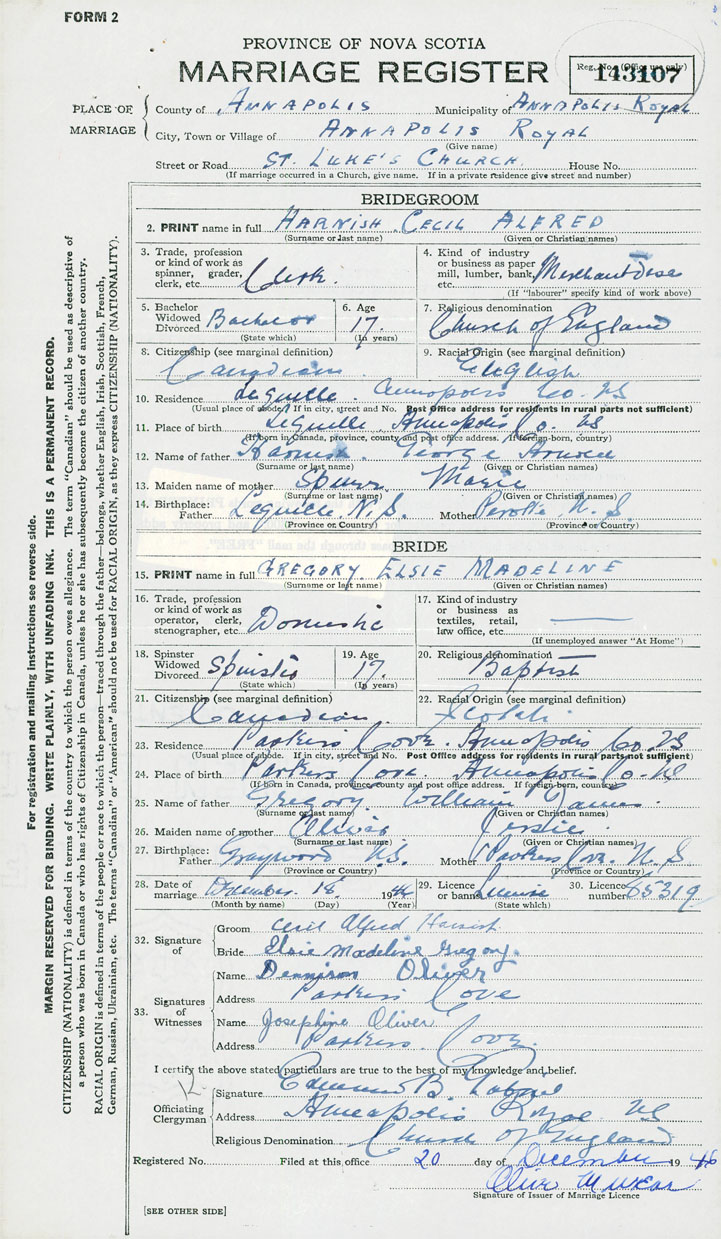 FORM 2
PROVINCE OF NOVA SCOTIA
MARRIAGE REGISTER
Reg. No. (Office use only)
143107
PLACE OF MARRIAGE
County of ANNAPOLIS Municipality of ANNAPOLIS ROYAL
City, Town or Village of ANNAPOLIS ROYAL
(Give name)
Street or Road ST. LUKE'S CHURCH. House No.
(If marriage occurred in a Church, give name. If in a private residence give street and number)
BRIDEGROOM
2. PRINT name in full HARNISH CECIL ALFRED
(Surname or last name) (Given or Christian names)
3. Trade, profession or kind of work as spinner, grader, clerk, etc. Clerk.
4. Kind of industry or business as paper mill, lumber, bank,
(If "labourer" specify kind of work above)
5. Bachelor Widowed Divorced Bachelor
(State which)
6. Age 17.
(In years)
7. Religious denomination Church of England
8. Citizenship (see marginal definition) Canadian
9. Racial Origin (see marginal definition) English
10. Residence Lequille. Annapolis Co. NS
(Usual place of abode. If in city, street and No. Post Office address for residents in rural parts not sufficient)
11. Place of birth Lequille, Annapolis Co. NS
(If born in Canada, province, county and post office address. If foreign-born, country)
12. Name of father Harnish George
(Surname or last name) (Given or Christian names)
13. Maiden name of mother Marie
(Surname or last name) (Given or Christian names)
14. Birthplace: Father Lequille N.S. Mother N. S.
(Province or Country) (Province or Country)
BRIDE
15. PRINT name in full GREGORY. ELSIE MADELINE
(Surname or last name) (Given or Christian names)
16. Trade, profession or kind of work as operator, clerk, stenographer, etc. Domestic
17. Kind of industry or business as textiles, retail, law office, etc.
(If unemployed answer "At Home")
18. Spinster Widowed Divorced Spinster
(State which)
19. Age 17.
(In years)
20. Religious denomination Baptist
21. Citizenship (see marginal definition) Canadian
22. Racial Origin (see marginal definition) Scotch
23. Residence Parkers Cove. Annapolis Co. NS
(Usual place of abode. If in city, street and No. Post Office address for residents in rural parts not sufficient)
24. Place of birth Parkers Cove. Annapolis Co. NS
(If born in Canada, province, county and post office address. If foreign-born, country)
25. Name of father Gregory. William James
(Surname or last name) (Given or Christian names)
26. Maiden name of mother Oliver
(Surname or last name) (Given or Christian names)
27. Birthplace: Father Graywood N.S. Mother Parkers Cove. N. S
(Province or Country) (Province or Country)
28. Date of marriage December. 18 19
(Month by name) (Day) (Year)
29. Licence or banns License
(State which)
30. Licence number 65319
32. Signature of
Groom Cecil Alfred Harnish
Bride Elsie Madeline Gregory.
33. Signatures of Witnesses
Name Dennison Oliver
Address Parkers Cove
Name Josephine Oliver
Address Parkers. Cove.
I certify the above stated particulars are true to the best of my knowledge and belief.
Officiating Clergyman
Signature B.
Address Annapolis Royal NS
Religious Denomination Church of England
Registered No. Filed at this office 20 day of December 1946
Olive
Signature of Issuer of Marriage Licence
[SEE OTHER SIDE]
For registration and mailing instructions see reverse side.
MARGIN RESERVED FOR BINDING. WRITE PLAINLY, WITH UNFADING INK. THIS IS A PERMANENT RECORD.
CITIZENSHIP (NATIONALITY) is defined in terms of the country to which the person owes allegiance. The term "Canadian" should be used as descriptive of
a person who was born in Canada or who has rights of Citizenship in Canada, unless he or she has subsequently become the citizen of another country.
RACIAL ORIGIN is defined in terms of the people or race to which the person—traced through the father—belongs, whether English, Irish, Scottish, French,
German, Russian, Ukrainian, etc. The terms "Canadian" or "American" should not be used for RACIAL ORIGIN, as they express CITIZENSHIP (NATIONALITY).